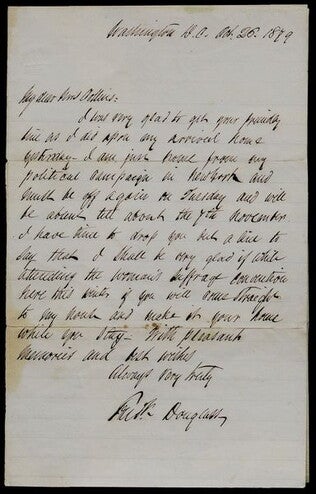 Washington D.C. Oct. 26. 1879
My dear Mrs
I was very glad to get your friendly
line as I did upon my arrival home
yesterday - I am just home from my
political campaign in and
must be off again on Tuesday and will
be absent till about the 7th November.
I have time to drop you but a line to
say that I shall be very glad if while
attending the Woman's Suffrage Convention
here this winter if you will come straight
to my house and make it your home
while you stay - With pleasant
memories and best wishes
Always very truly
Fredk Douglass